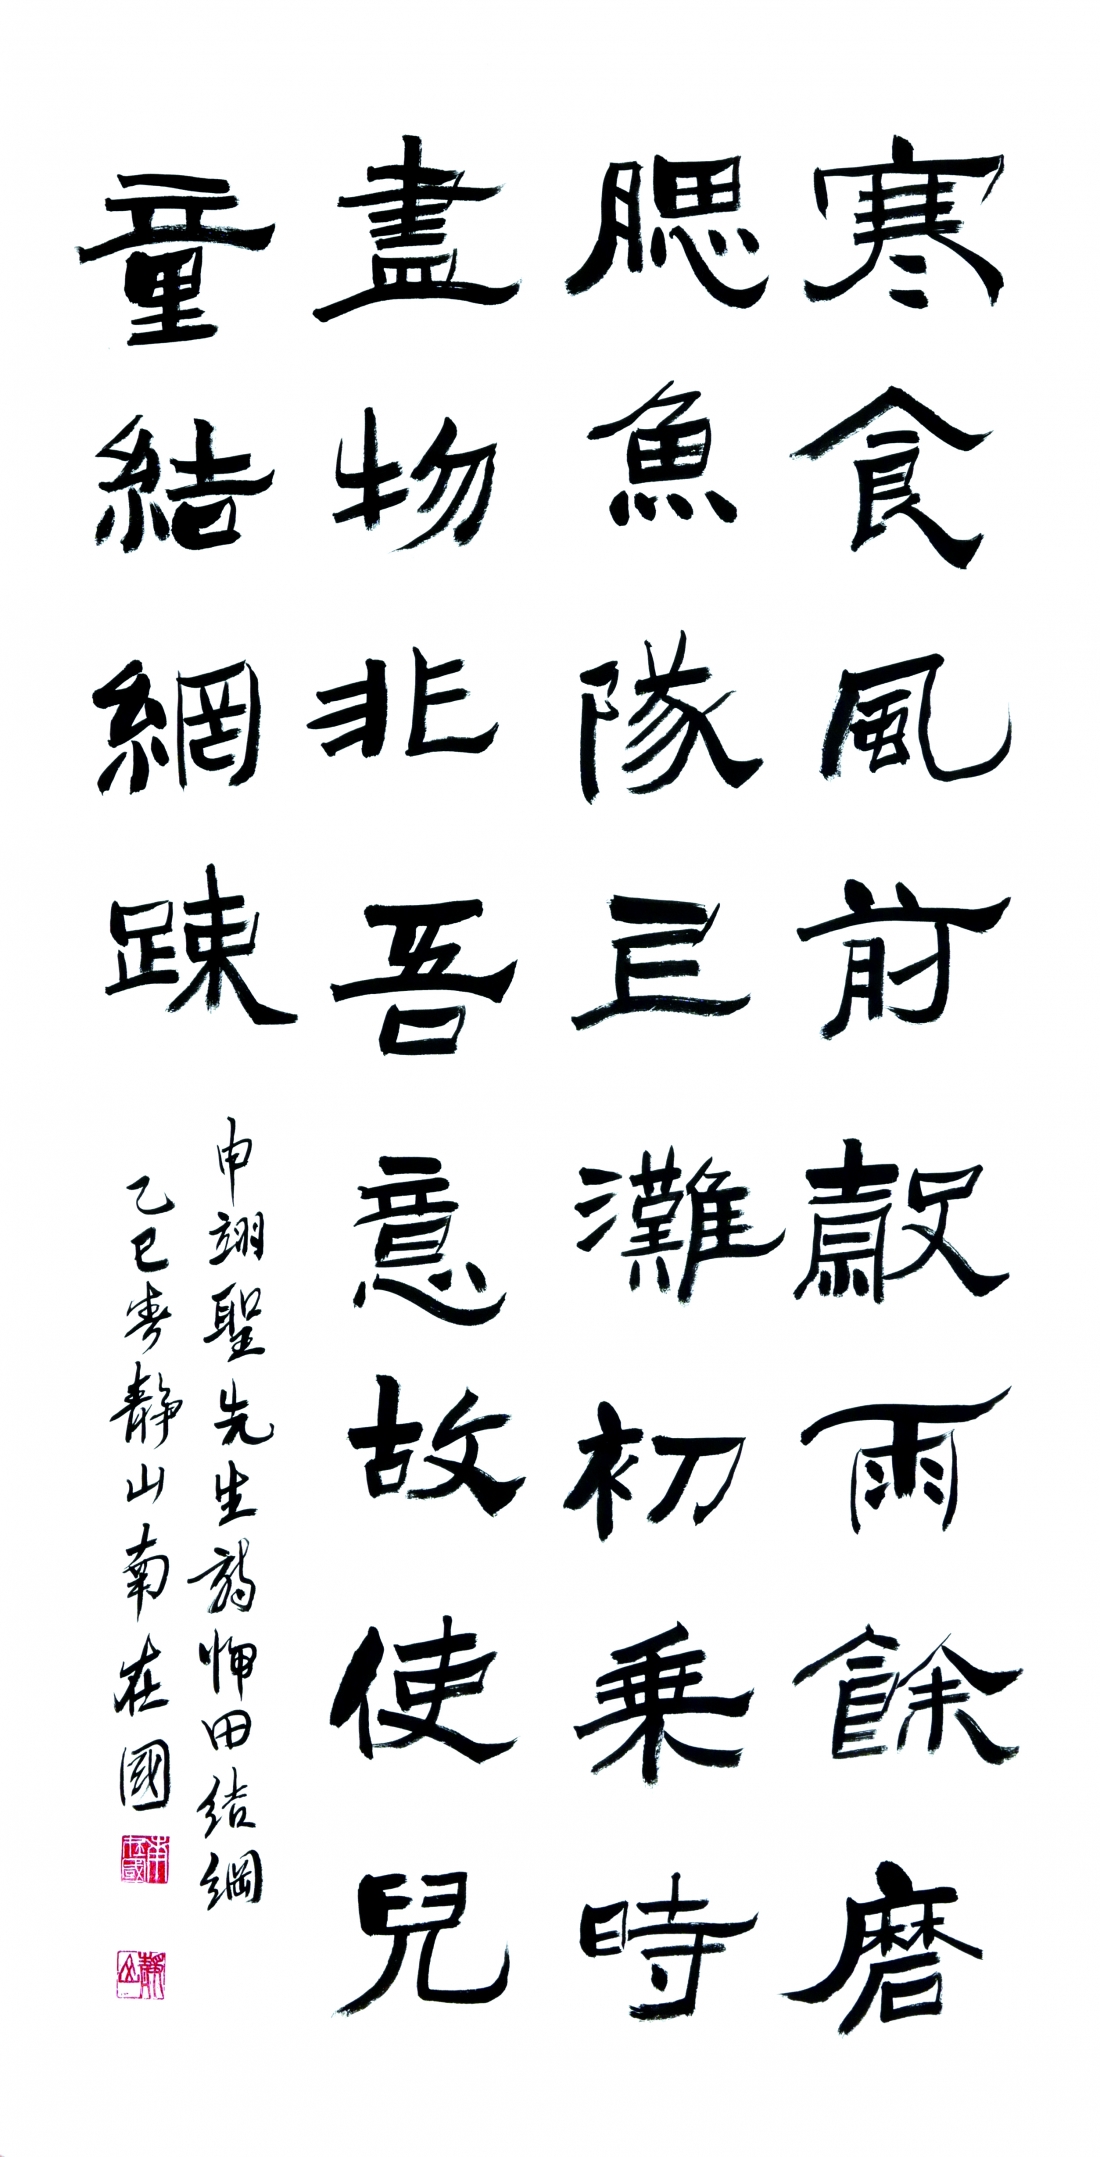 寒食風前穀雨餘磨
腮魚隊上灘初乗時
盡物非吾意故使兒
童結網踈
申翊聖先生詩伸田結網
乙巳春靜山南在國
南在國
靜山